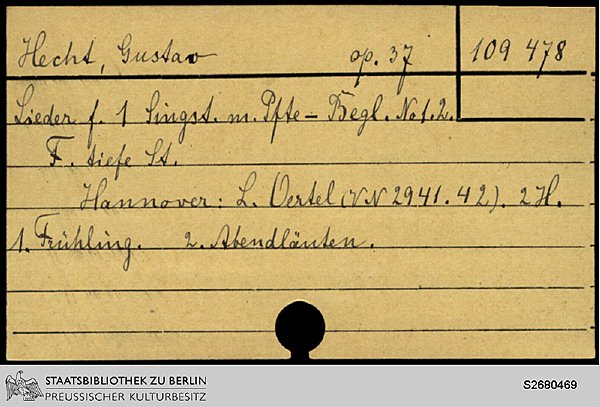 Hecht, Gustav op. 37 109 478
Lieder f. 1 Singst. m. Pfte-Begl. No 1.2.
F. tiefe St.
Hannover: L. Oertel (VN 2941.42). 2 H.
1. Frühling. 2. Abendläuten.
STAATSBIBLIOTHEK ZU BERLIN
PREUSSISCHER KULTURBESITZ
S2680469